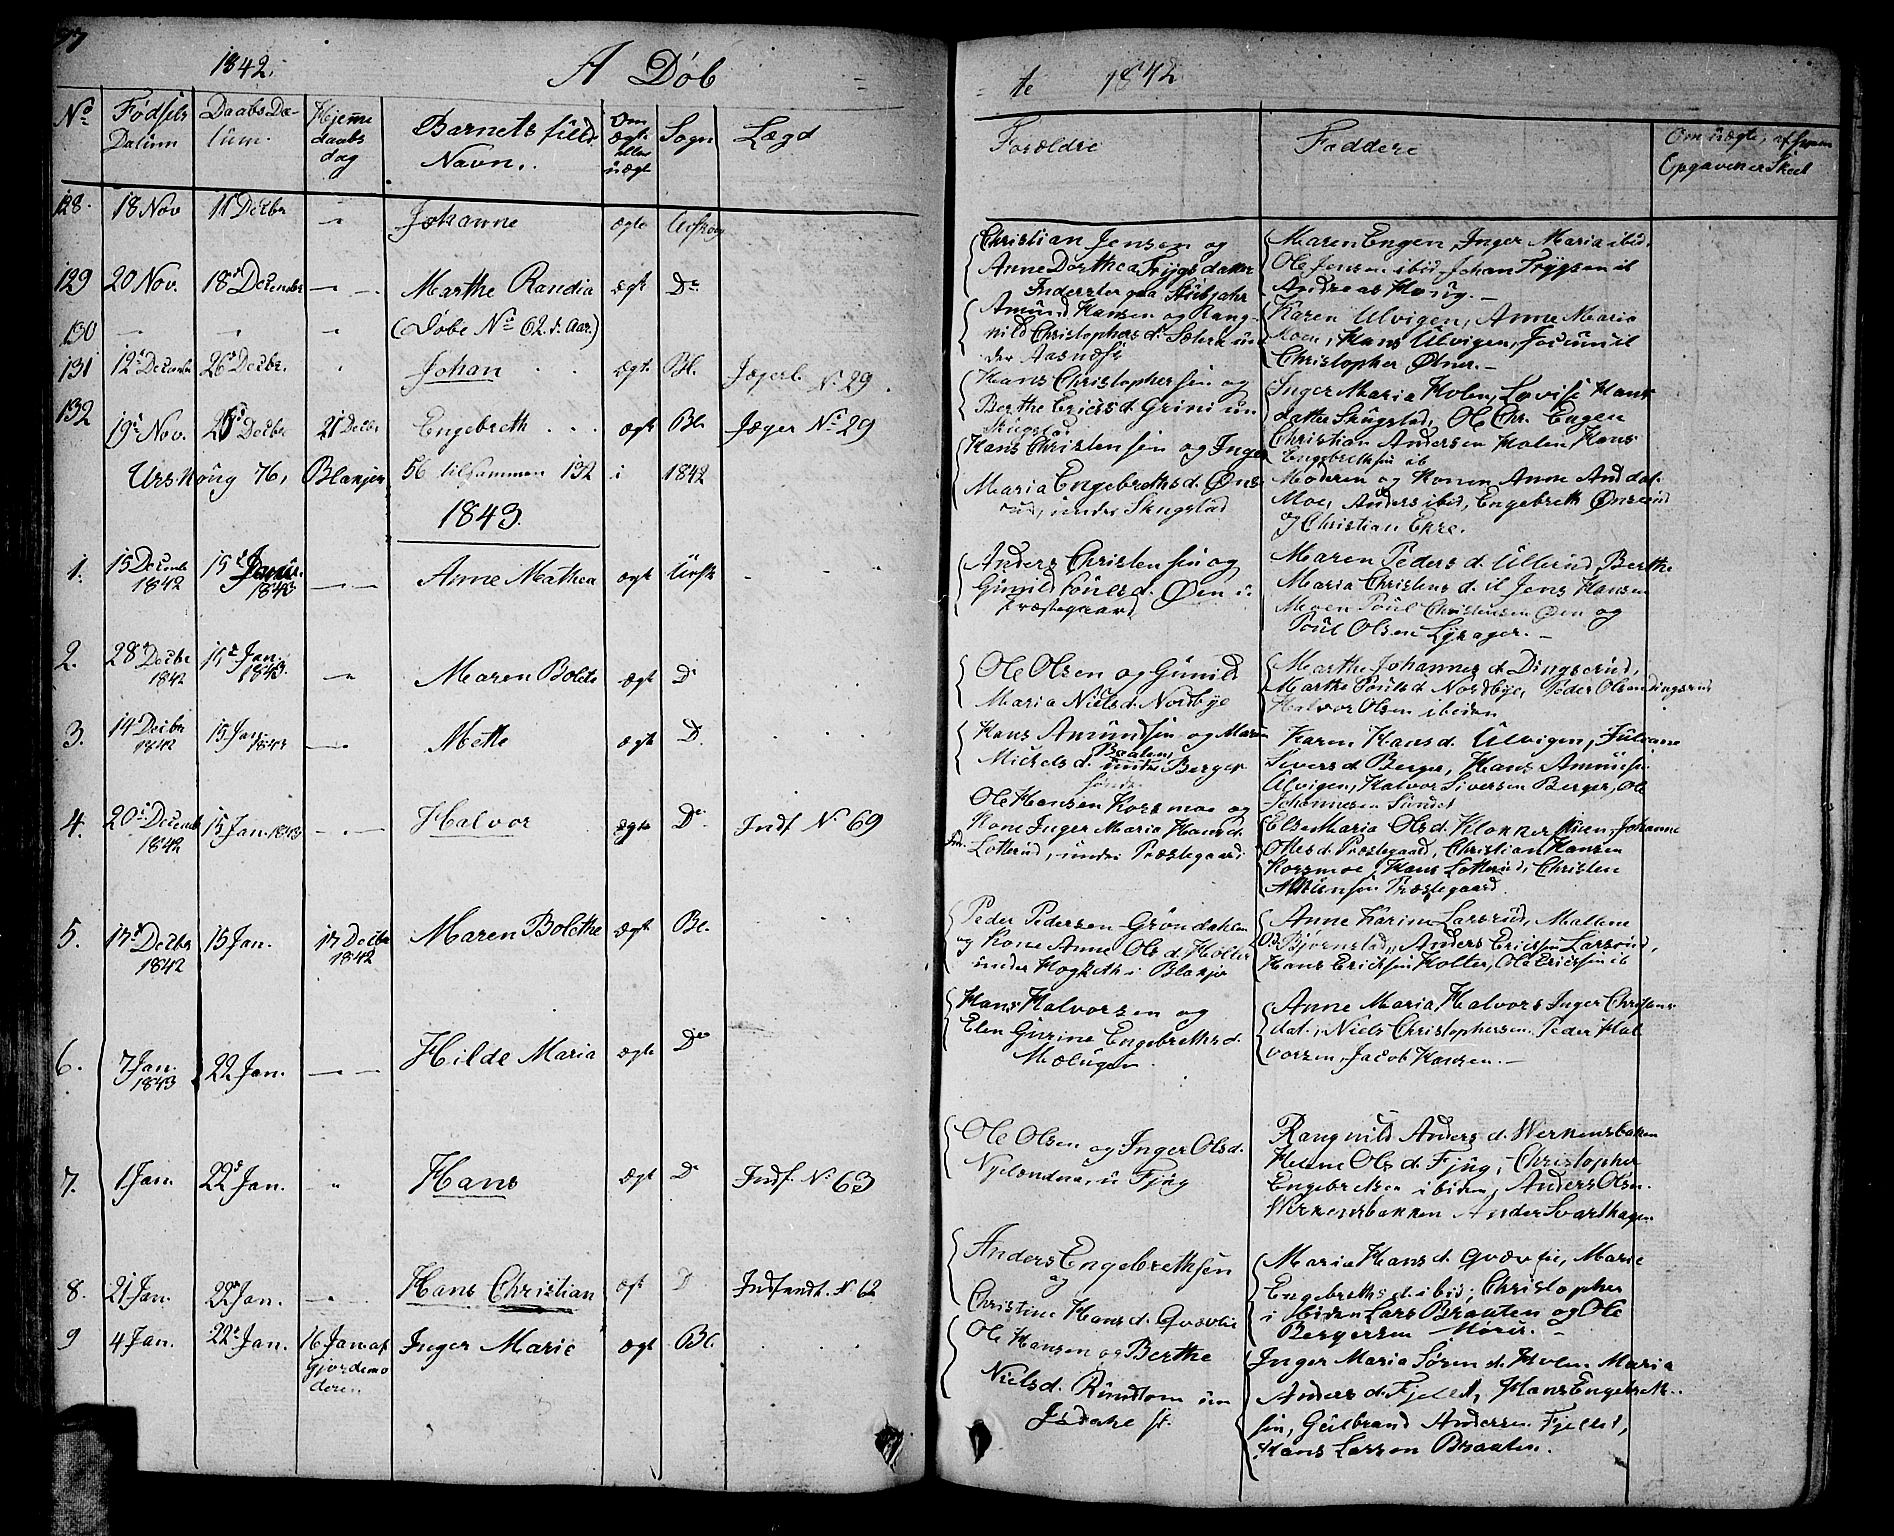 1842.
A Døb
te 1842
No
Fødsels Datum
Daabs Datum.
Hjemme daabs dag
Barnets fulde Navn.
Om ægte eller uægte
Sogn
Lægd
Forældre
Faddere
128. 18 Nov 11 Decbr Johanne ægte
Christian Jensen og
Anne Dorthea Trygsdatter
Maren Engen, Inger Maria ibid.
Ole Jensen ibid, Johan Trygsen
Andreas
129 20 Nov. 18 December Marthe Randia ægt Do
Amund Hansen og Rang-
nild Christophers d.
Karen Ulvigen, Anne Maria
Moen, Hans Ulvigen,
Christopher
130 (Døbe No 62. i. Aar.)
131 12 Decemb 26 Decbr. Johan ægt. Bl. Jægerl. No. 29.
Hans Christophersen og
Berthe Ericsd. Grini un
Skugstad
Inger Maria Holen, Lovise Hans
datter Skugstad, Ole Chr. Engen
Christian Andersen Holen Hans
Engebrethsen ib
132 19 Nov. 26 Decbr 21 Decbr Engebreth ægt Bl. Jæger No 29
Hans Christensen og Inger
Maria Engebrethsd. Øns
rud, under Skugstad
Moderen og Konen Anne And dat.
Moe, Anders ibid, Engebreth Ønsrud
og Christian Ekre.
Urskoug 76, Blakjer 56 tilsammen 132 i 1842
1843.
1. 15 Decemb 1842 15 Januar. 1843 Anne Mathea ægt Ursk
Anders Christensen og
Gunild Poulsd. Øen i
Præstegaard
Maren Peders d. Ullerud, Berthe
Maria Christens d. Jens Hansen
Moen Poul Christensen Øen og
Poul Olsen Lyrager.
2. 28 Decbr 1842 15 Jan. 1843. Maren Bolethe ægt D
Ole Olsen og Gunild
Maria Nielsd. Nordbye
Marthe Johannes d. Dingsrud,
Marthe Poulsd. Nordbye, Peder Olsen Dingsrud
Halvor Olsen ibiden
3. 14 Decbr 1842 15 Jan. 1843 Mette ægt D.
Hans Amundsen og Maren
Michelsd. Braaten, under Berger
Karen Hansd. Ulvigen, Juliane
Sivers d Berger, Hans Amunsen
Ulvigen, Halvor Siversen Berger, Ole
Johannesen Sundet
4. 20 Decemb 1842 15 Jan. 1843 Halvor ægte Do Indf No 69
Ole Hansen Korsmoe og
Kone Inger Maria Hansd.
Lotterud, under Præstegaard
Else Maria Olsd. Johanne
Olsd. Præstegaard, Christian Hansen
Korsmoe, Hans Lotterud, Christen
Præstegaard.
5. 17 Decbr 1842 15 Jan. 17 Decbr 1842 Maren Bolethe ægt Bl.
Peder Pedersen Grøndahlen
og Kone Anne Olsd. Holter
under Hogseth i Blakjer
Anne Karine Larsrud, Mallene
Bjørnstad, Anders Ericksen Larsrud,
Hans Ericksen Holter, Ole Ericksen ib
6. 7 Jan. 1843 22 Jan. Hilde Maria ægte Do
Hans Halvorsen og
Elen Gurine Engebrethsd.
Anne Maria Halvors Inger Christians
dat., Niels Christophersen Peder Hal
vorsen, Jacob Hansen.
7. 1 Jan. 22 Jan. Hans ægt D Indf. No 63
Ole Olsen og Inger Olsd.
u Fjug
Rangnild Anders d. Werkensbaken
Helene Olsd. Fjug, Christopher
Engebretsen ibiden, Anders Olsen
Werkensbakken Anders Svarthagen
8. 21 Jan. 22 Jan. Hans Christian ægt D Indfendt. No 62
Anders Engebrethsen
og
Christine Hans d. Qvævlie
Maria Hans d. Qvævlie, Marie
Engebrethsd. ibid, Christopher
ibiden Lars Braaten og Ole
Bergersen
9 4 Jan. 22 Jan. 16 Jan. af Gjordemoderen Inger Marie ægt Bl.
Ole Hansen og Berthe
Nielsd. Rundtom un
Inger Maria Søren d. Holen Maria
Anders d. Fjellet, Hans Engebreth
sen, Gulbrand Andersen Fjellet,
Hans Larsen Braaten.